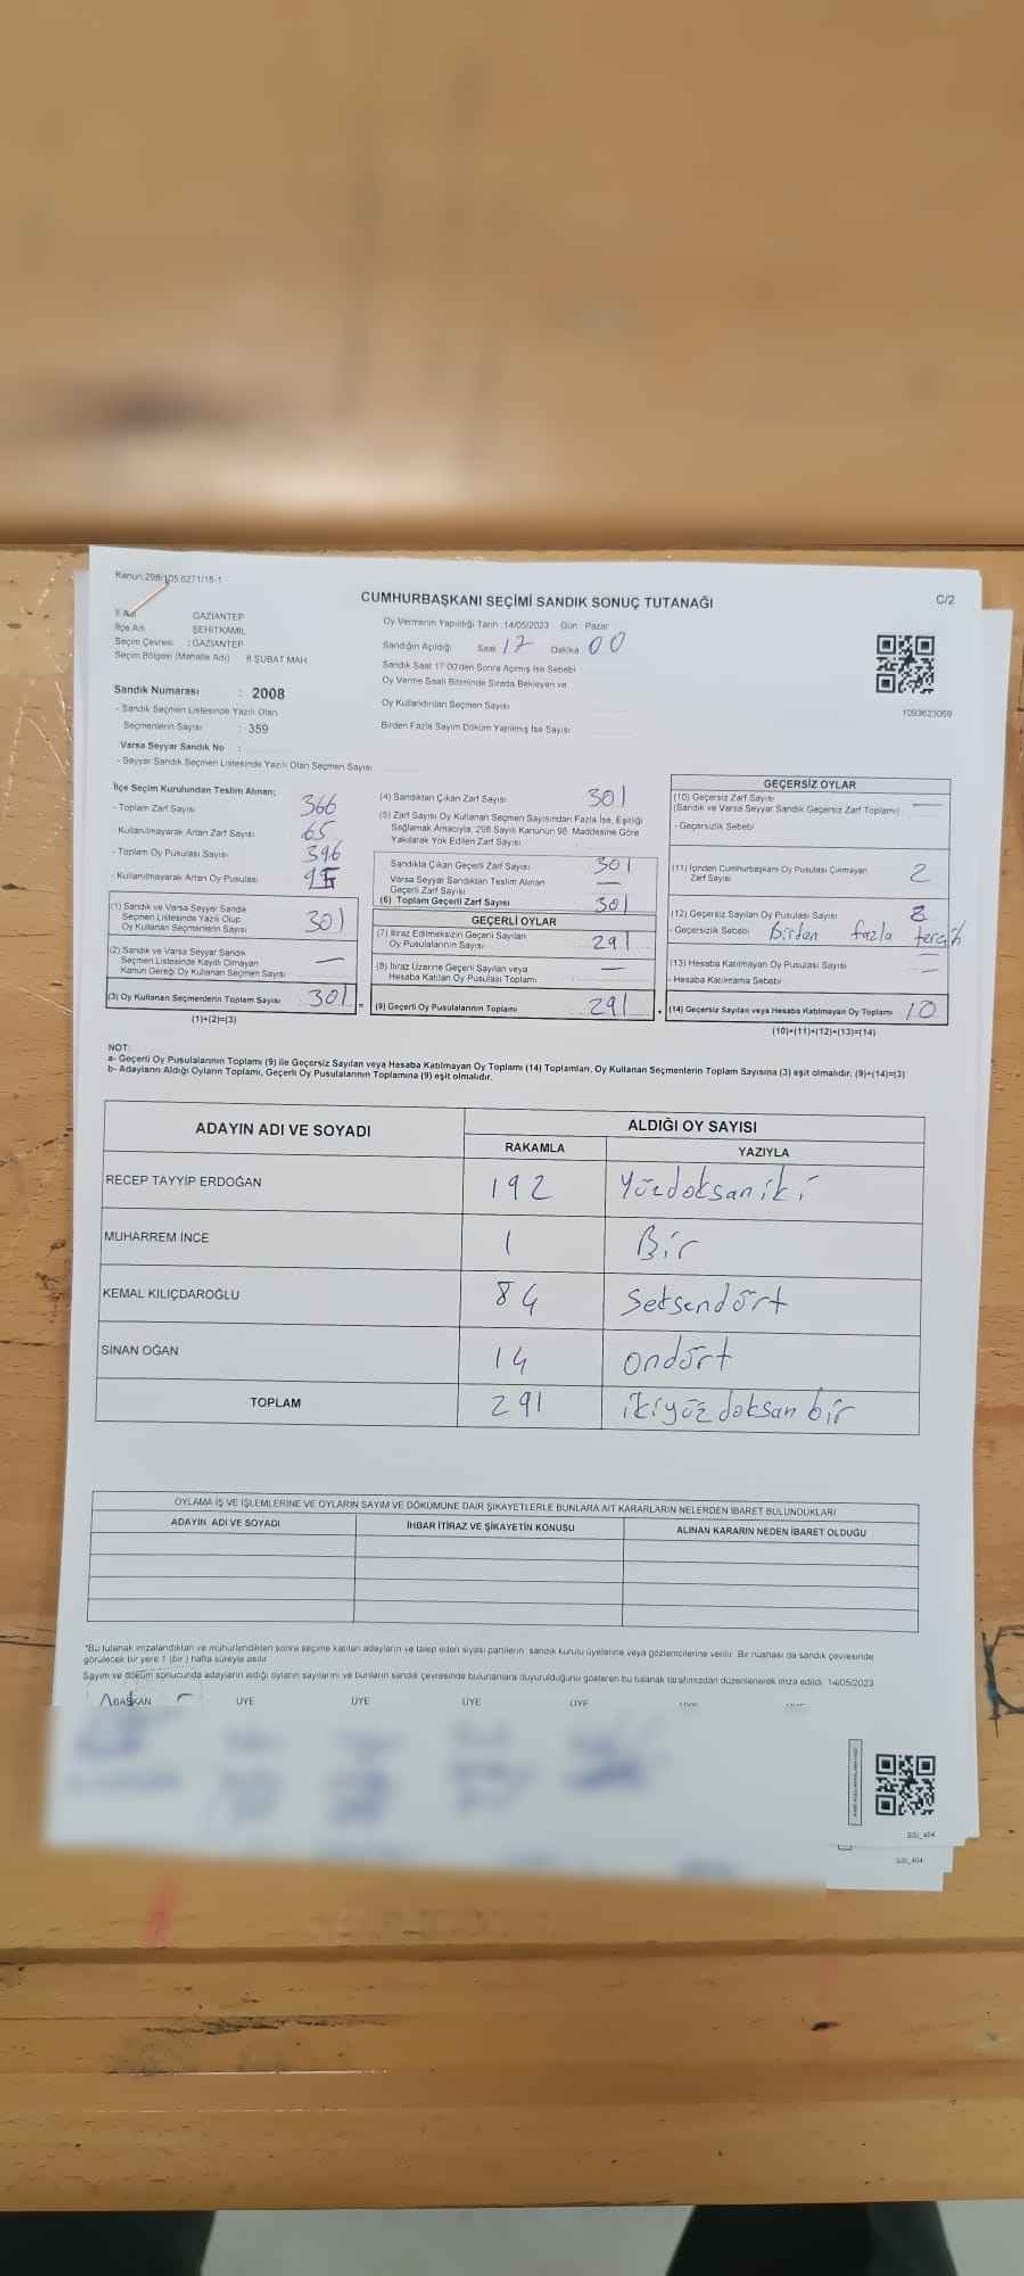 Kanun:298/105,6271/15-1
CUMHURBAŞKANI SEÇİMİ SANDIK SONUÇ TUTANAĞI
C/2
İl Adı GAZİANTEP
İlçe Adı ŞEHİTKAMİL
Seçim Çevresi : GAZİANTEP
Seçim Bölgesi (Mahalle Adı) 8 ŞUBAT MAH
Oy Vermenin Yapıldığı Tarih :14/05/2023 Gün : Pazar
Sandığın Açıldığı Saat 17 Dakika 00
Sandık Saat 17:00'den Sonra Açılmış İse Sebebi
Oy Verme Saati Bitiminde Sırada Bekleyen ve
Oy Kullandırılan Seçmen Sayısı
Birden Fazla Sayım Döküm Yapılmış İse Sayısı
1093623069
Sandık Numarası : 2008
- Sandık Seçmen Listesinde Yazılı Olan
Seçmenlerin Sayısı : 359
Varsa Seyyar Sandık No :
- Seyyar Sandık Seçmen Listesinde Yazılı Olan Seçmen Sayısı
İlçe Seçim Kurulundan Teslim Alınan;
- Toplam Zarf Sayısı 366
- Kullanılmayarak Artan Zarf Sayısı 65
- Toplam Oy Pusulası Sayısı 396
- Kullanılmayarak Artan Oy Pusulası
(1) Sandık ve Varsa Seyyar Sandık
Seçmen Listesinde Yazılı Olup
Oy Kullanan Seçmenlerin Sayısı 301
(2) Sandık ve Varsa Seyyar Sandık
Seçmen Listesinde Kayıtlı Olmayan
Kanun Gereği Oy Kullanan Seçmen Sayısı —
(3) Oy Kullanan Seçmenlerin Toplam Sayısı 301
(1)+(2)=(3)
(4) Sandıktan Çıkan Zarf Sayısı 301
(5) Zarf Sayısı Oy Kullanan Seçmen Sayısından Fazla İse, Eşitliği
Sağlamak Amacıyla, 298 Sayılı Kanunun 98. Maddesine Göre
Yakılarak Yok Edilen Zarf Sayısı
Sandıkta Çıkan Geçerli Zarf Sayısı 301
Varsa Seyyar Sandıktan Teslim Alınan
Geçerli Zarf Sayısı —
(6) Toplam Geçerli Zarf Sayısı 301
GEÇERLİ OYLAR
(7) İtiraz Edilmeksizin Geçerli Sayılan
Oy Pusulalarının Sayısı 291
(8) İtiraz Üzerine Geçerli Sayılan veya
Hesaba Katılan Oy Pusulası Toplamı —
(9) Geçerli Oy Pusulalarının Toplamı 291
GEÇERSİZ OYLAR
(10) Geçersiz Zarf Sayısı —
(Sandık ve Varsa Seyyar Sandık Geçersiz Zarf Toplamı)
- Geçersizlik Sebebi
(11) İçinden Cumhurbaşkanı Oy Pusulası Çıkmayan
Zarf Sayısı 2
(12) Geçersiz Sayılan Oy Pusulası Sayısı 8
- Geçersizlik Sebebi Birden fazla tercih
(13) Hesaba Katılmayan Oy Pusulası Sayısı —
- Hesaba Katılmama Sebebi —
(14) Geçersiz Sayılan veya Hesaba Katılmayan Oy Toplamı 10
(10)+(11)+(12)+(13)=(14)
NOT:
a- Geçerli Oy Pusulalarının Toplamı (9) ile Geçersiz Sayılan veya Hesaba Katılmayan Oy Toplamı (14) Toplamları, Oy Kullanan Seçmenlerin Toplam Sayısına (3) eşit olmalıdır. (9)+(14)=(3)
b- Adayların Aldığı Oyların Toplamı, Geçerli Oy Pusulalarının Toplamına (9) eşit olmalıdır.
ADAYIN ADI VE SOYADI
ALDIĞI OY SAYISI
RAKAMLA YAZIYLA
RECEP TAYYİP ERDOĞAN 192 Yüzdoksaniki
MUHARREM İNCE 1 Bir
KEMAL KILIÇDAROĞLU 84 Seksendört
SİNAN OĞAN 14 ondört
TOPLAM 291 ikiyüzdoksan bir
OYLAMA İŞ VE İŞLEMLERİNE VE OYLARIN SAYIM VE DÖKÜMÜNE DAİR ŞİKAYETLERLE BUNLARA AİT KARARLARIN NELERDEN İBARET BULUNDUKLARI
ADAYIN ADI VE SOYADI İHBAR İTİRAZ VE ŞİKAYETİN KONUSU ALINAN KARARIN NEDEN İBARET OLDUĞU
*Bu tutanak imzalandıktan ve mühürlendikten sonra seçime katılan adayların ve talep eden siyasi partilerin, sandık kurulu üyelerine veya gözlemcilerine verilir. Bir nüshası da sandık çevresinde
görülecek bir yere 1 (bir ) hafta süreyle asılır
Sayım ve döküm sonucunda adayların aldığı oyların sayılarını ve bunların sandık çevresinde bulunanlara duyurulduğunu gösteren bu tutanak tarafımızdan düzenlenerek imza edildi. 14/05/2023
BAŞKAN ÜYE ÜYE ÜYE ÜYE